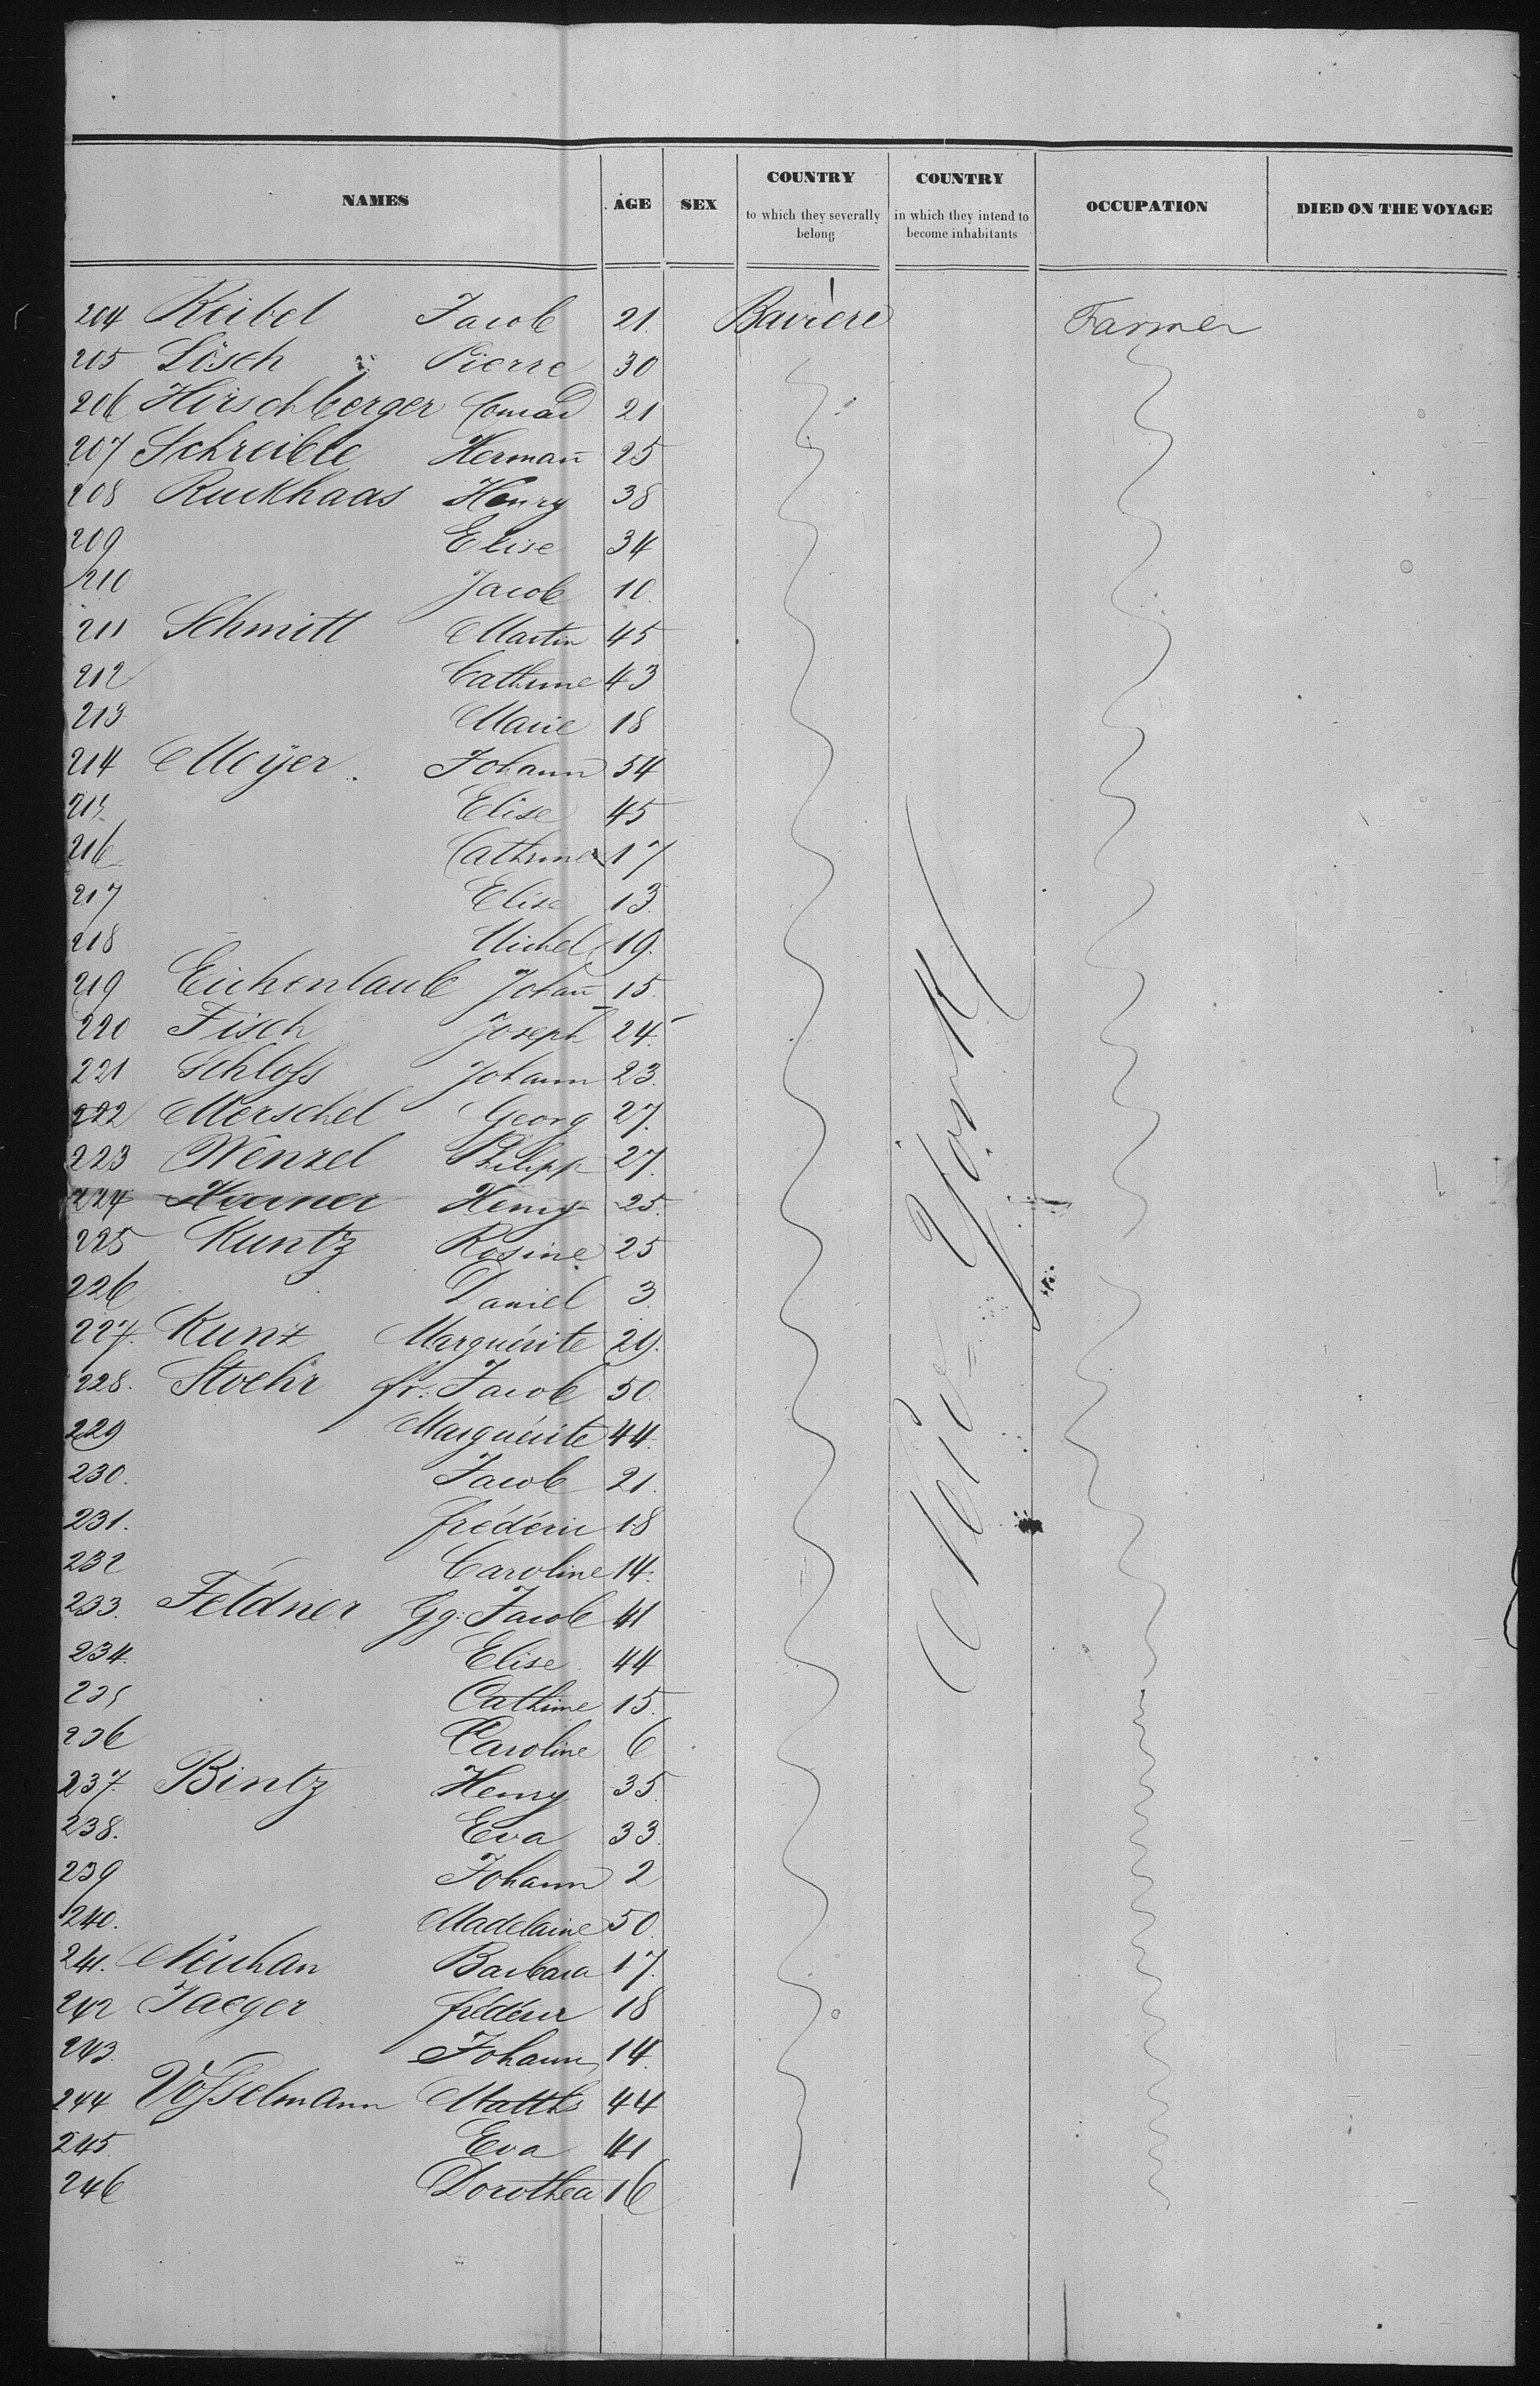 NAMES AGE SEX COUNTRY to which they severally belong COUNTRY in which they intend to become inhabitants OCCUPATION DIED ON THE VOYAGE
204 Reibel Jacob 21. Bavière Farmer
205 Lösch Pierre 30
206 Hirschberger Conrad 21
207 Schreible Hermañ 25
208 Ruckhaas Henry 38
209 Elise 34
210 Jacob 10.
211 Schmitt Martin 45
212 Cathrine 43
213 Marie 18
214 Meÿer Johann 54
215 Elise 45
216 Cathrine 17
217 Elise 13.
218 Michel 19.
219 Eichenlaub Johañ 15.
220 Fisch Joseph 24.
221 Schloss Johann 23.
222 Merschel Georg 27.
223 Wenzel Philipp 27.
224 Henry 25.
225 Kuntz Rosine 25
226 Daniel 3.
227. Kunz Marguérite 29.
228. Stoehr fr. Jacob 50.
229 Marguérite 44.
230. Jacob 21.
231. frédéric 18
232 Caroline 14.
233. Feldner Gg. Jacob 41
234. Elise 44
235 Cathrine 15.
236 Caroline 6
237. Bintz Henry 35.
238. Eva 33.
239 Johann 2
240. Madelaine 50.
241. Neuhan Barbara 17.
242 Jaeger frédéric 18
243. Johann 14.
244 Vosselmann Matths 44
245. Eva 41
246 Dorothea 16
New-York